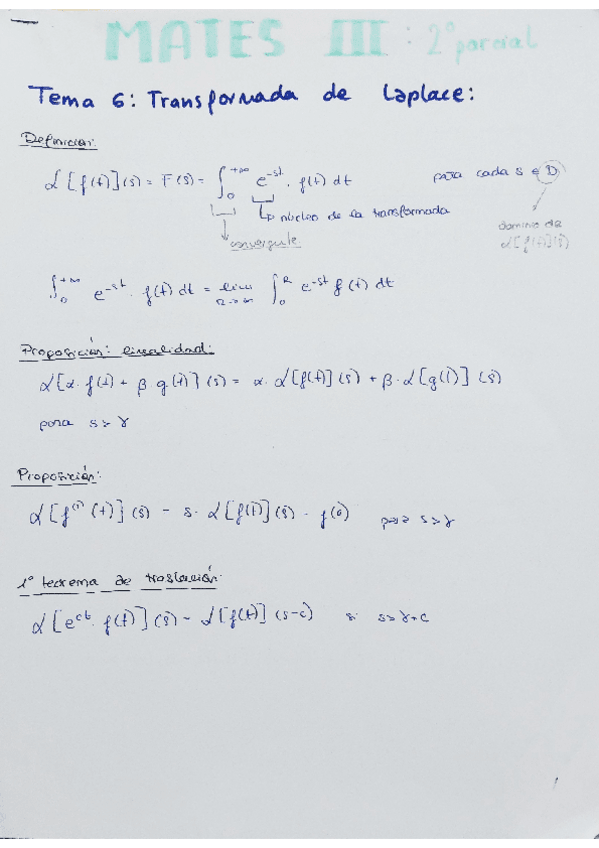 MATES III : 2º parcial
Tema 6: Transformada de Laplace:
Definición:
ℒ[f(t)](s) = F(s) = ∫₀^{+∞} e^{-st} · f(t) dt para cada s ∈ D
núcleo de la transformada
convergente
dominio de
ℒ[f(t)](s)
∫₀^{+∞} e^{-st} · f(t) dt = lim_{R→∞} ∫₀^{R} e^{-st} f(t) dt
Proposición: linealidad:
ℒ[α · f(t) + β · g(t)](s) = α · ℒ[f(t)](s) + β · ℒ[g(t)](s)
para s > γ
Proposición:
ℒ[f^{(1)}(t)](s) = s · ℒ[f(t)](s) - f(0) para s > γ
1º teorema de traslación:
ℒ[e^{ct} · f(t)](s) = ℒ[f(t)](s-c) si s > γ + c
1